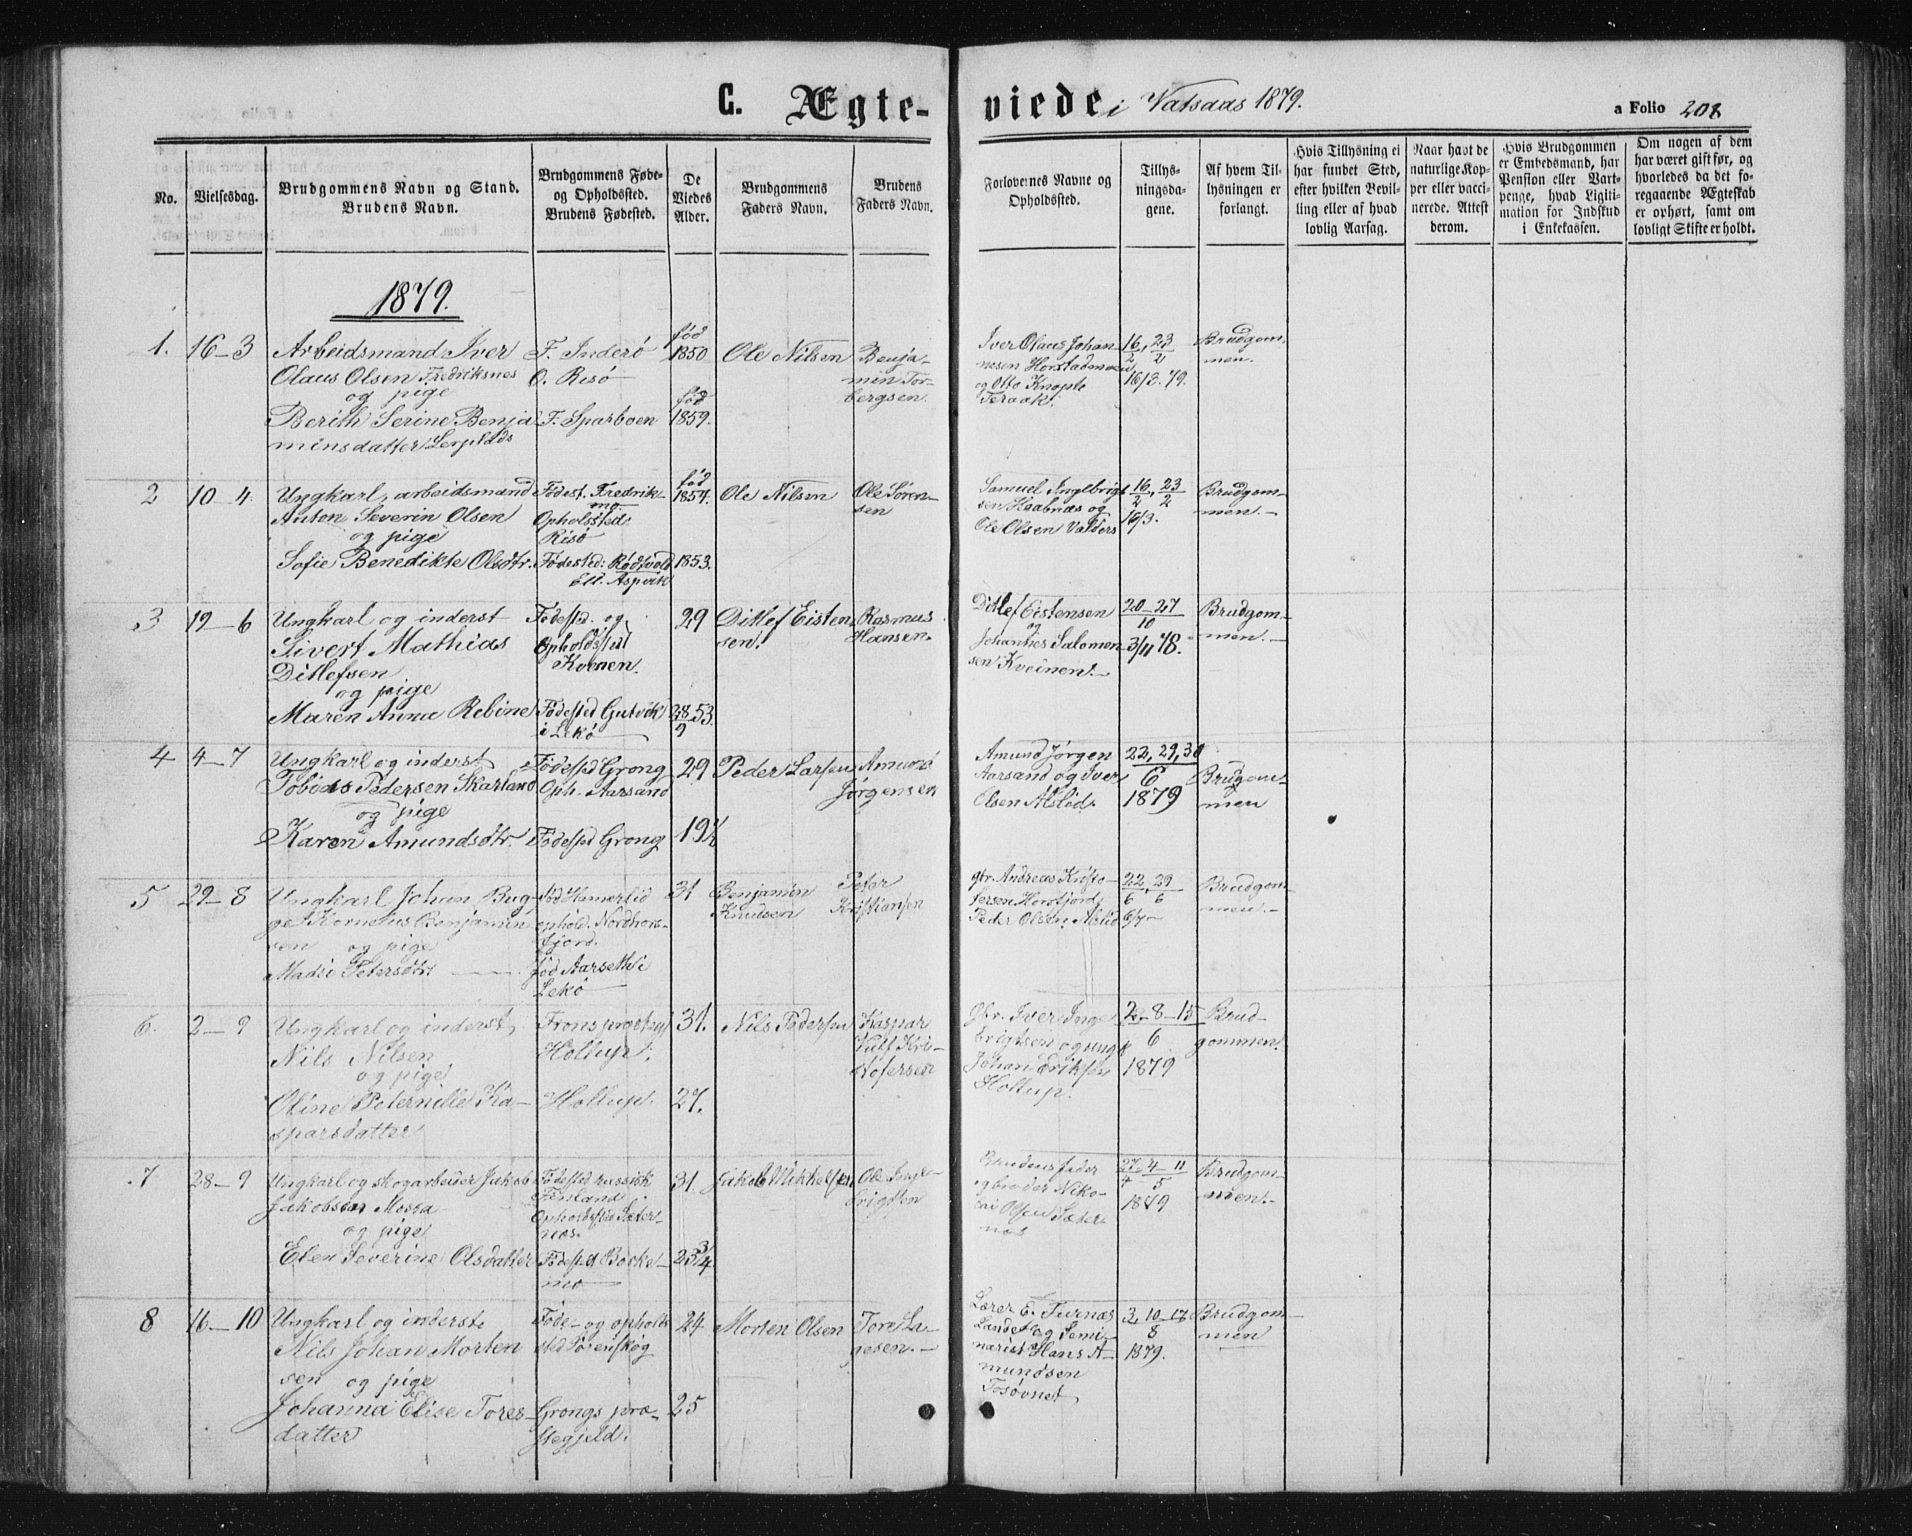 C. Ægte-
viede i Vatsaas 1879.
a Folio 208
No.
Vielsesdag.
Brudgommens Navn og Stand.
Brudens Navn.
Brudgommens Føde-
og Opholdssted.
Brudens Fødested.
De
Viedes
Alder.
Brudgommens
Faders Navn.
Brudens
Faders Navn.
Forlovernes Navne og
Opholdssted.
Tillys-
ningsda-
gene.
Af hvem Til-
lysningen er
forlangt.
Hvis Tillysning ei
har fundet Sted,
efter hvilken Bevil-
ling eller af hvad
lovlig Aarsag.
Naar havt de
naturlige Kop-
per eller vacci-
nerede. Attest
derom.
Hvis Brudgommen
er Embedsmand, har
Pension eller Vart-
penge, hvad Ligiti-
mation for Indskud
i Enkekassen.
Om nogen af dem
har været gift før, og
hvorledes da det fo-
regaaende Ægteskab
er ophørt, samt om
lovligt Skifte er holdt.
1879.
1. 16-3
Arbeidsmand Iver
Olaus Olsen Fredriksnes
og pige
Berith Serine Benja
minsdatter
F. Inderø
O. Risø
F. Sparboen
fød
1850
fød
1859.
Ole Nilsen
Benja-
min Tor-
bergsen
Iver Olaus Johan
nesen
og Otto
Teraak.
16, 23
2 2
16/3. 79.
Brudgom
men.
2 10-4
Ungkarl, arbeidsmand
Anton Severin Olsen
og pige
Sofie Benedikte Olsdtr.
Fødest. Fredrik-
mo
Opholssted:
Risø
Fødested: Rødsvold
Ell. Aspvik
fød
1857.
1853.
Ole Nilsen
Ole Søren-
sen
Samuel Ingebrigt
sen og
Ole Olsen Valders
16, 23
2 2
16/3.
Brudgom-
men.-
3 19-6
Ungkarl og inderst
Sivert Mathias
Ditlefsen
og pige
Maren Anna Rebine
Fødested. og
Opholdssted
Kvenen.
Fødested Gutvik
i Lekø
29
28 53.
9
Ditlef Eisten
sen.
Rasmus
Hansen.
Ditlef Eistensen
og
Johannes Salomon
sen Kveinen.-
20-27
10
3/11 78.
Brudgom-
men.-
4 4-7
Ungkarl og inderst
Tobias Pedersen Skarland
og pige
Karen Amundsdtr.
Fødested Grong
Oph. Aarsand
Fødested Grong
29
19½
Peder Larsen
Amund
Jørgensen
Amund Jørgen
Aarsand og Iver
Olsen
22, 29, 30
6
1879
Brudgom-
men
5 29-8
Ungkarl Johan Bug-
ge Kornelius Benjamin
sen og pige
Madsi Petersdtr.
fød Hamerlid
ophold. Nordhors-
fjord.
fød Aarseth i
Lekø
31
Benjamin
Knudsen
Peter
Kristiansen
gbr. Andreas Kristo-
fersen Horsfjord,
Peder Olsen
22, 29
6 6
6/7-
Brudgom-
men.-
6. 2-9
Ungkarl og inderst
Nils Nilsen
og pige
Oline Peternille Ka-
sparsdatter
Frons præstegj
Holtup.
Holtup.
31.
27.
Nils Pedersen
Kaspar
Kri-
stofersen
Gbr. Iver Inge
brigtsen og ungk
Johan Eriksen
Holtup.
2-8-15
6
1879
Brud-
gommen.
7 28-9
Ungkarl og skogarbeider Jakob
Jakobsen Mossa
og pige
Elen Severine Olsdatter
Fødested russisk
Finland
Opholdssted Sæter-
næs.
Fødested
mo
31.
23 3/4
Jakob Mikkelsen
Ole Inge-
brigtsen
Brudens fader
og broder Niko-
lai Olsen Sæter-
næs
27, 4-11
4 5
1879
Brudgom-
men.-
8 16-10
Ungkarl og inderst
Nils Johan Morten
sen og pige
Johanna Elise Tores-
datter
Føde- og opholds
sted Sørenskog
Grongs præ-
stegjeld.
24
25
Morten Olsen
Tore La-
gesen.-
Lærer E. Furnæs
Landet og Semi-
narist Hans A-
mundsen
Tosøvnet
3, 10-17
8
1879.
Brudgom-
men